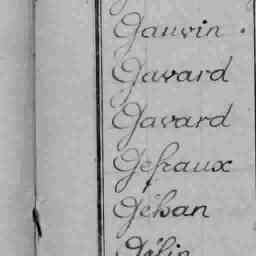 Gauvin .
Gavard
Gavard
Gefraux
Géhan
Gélin